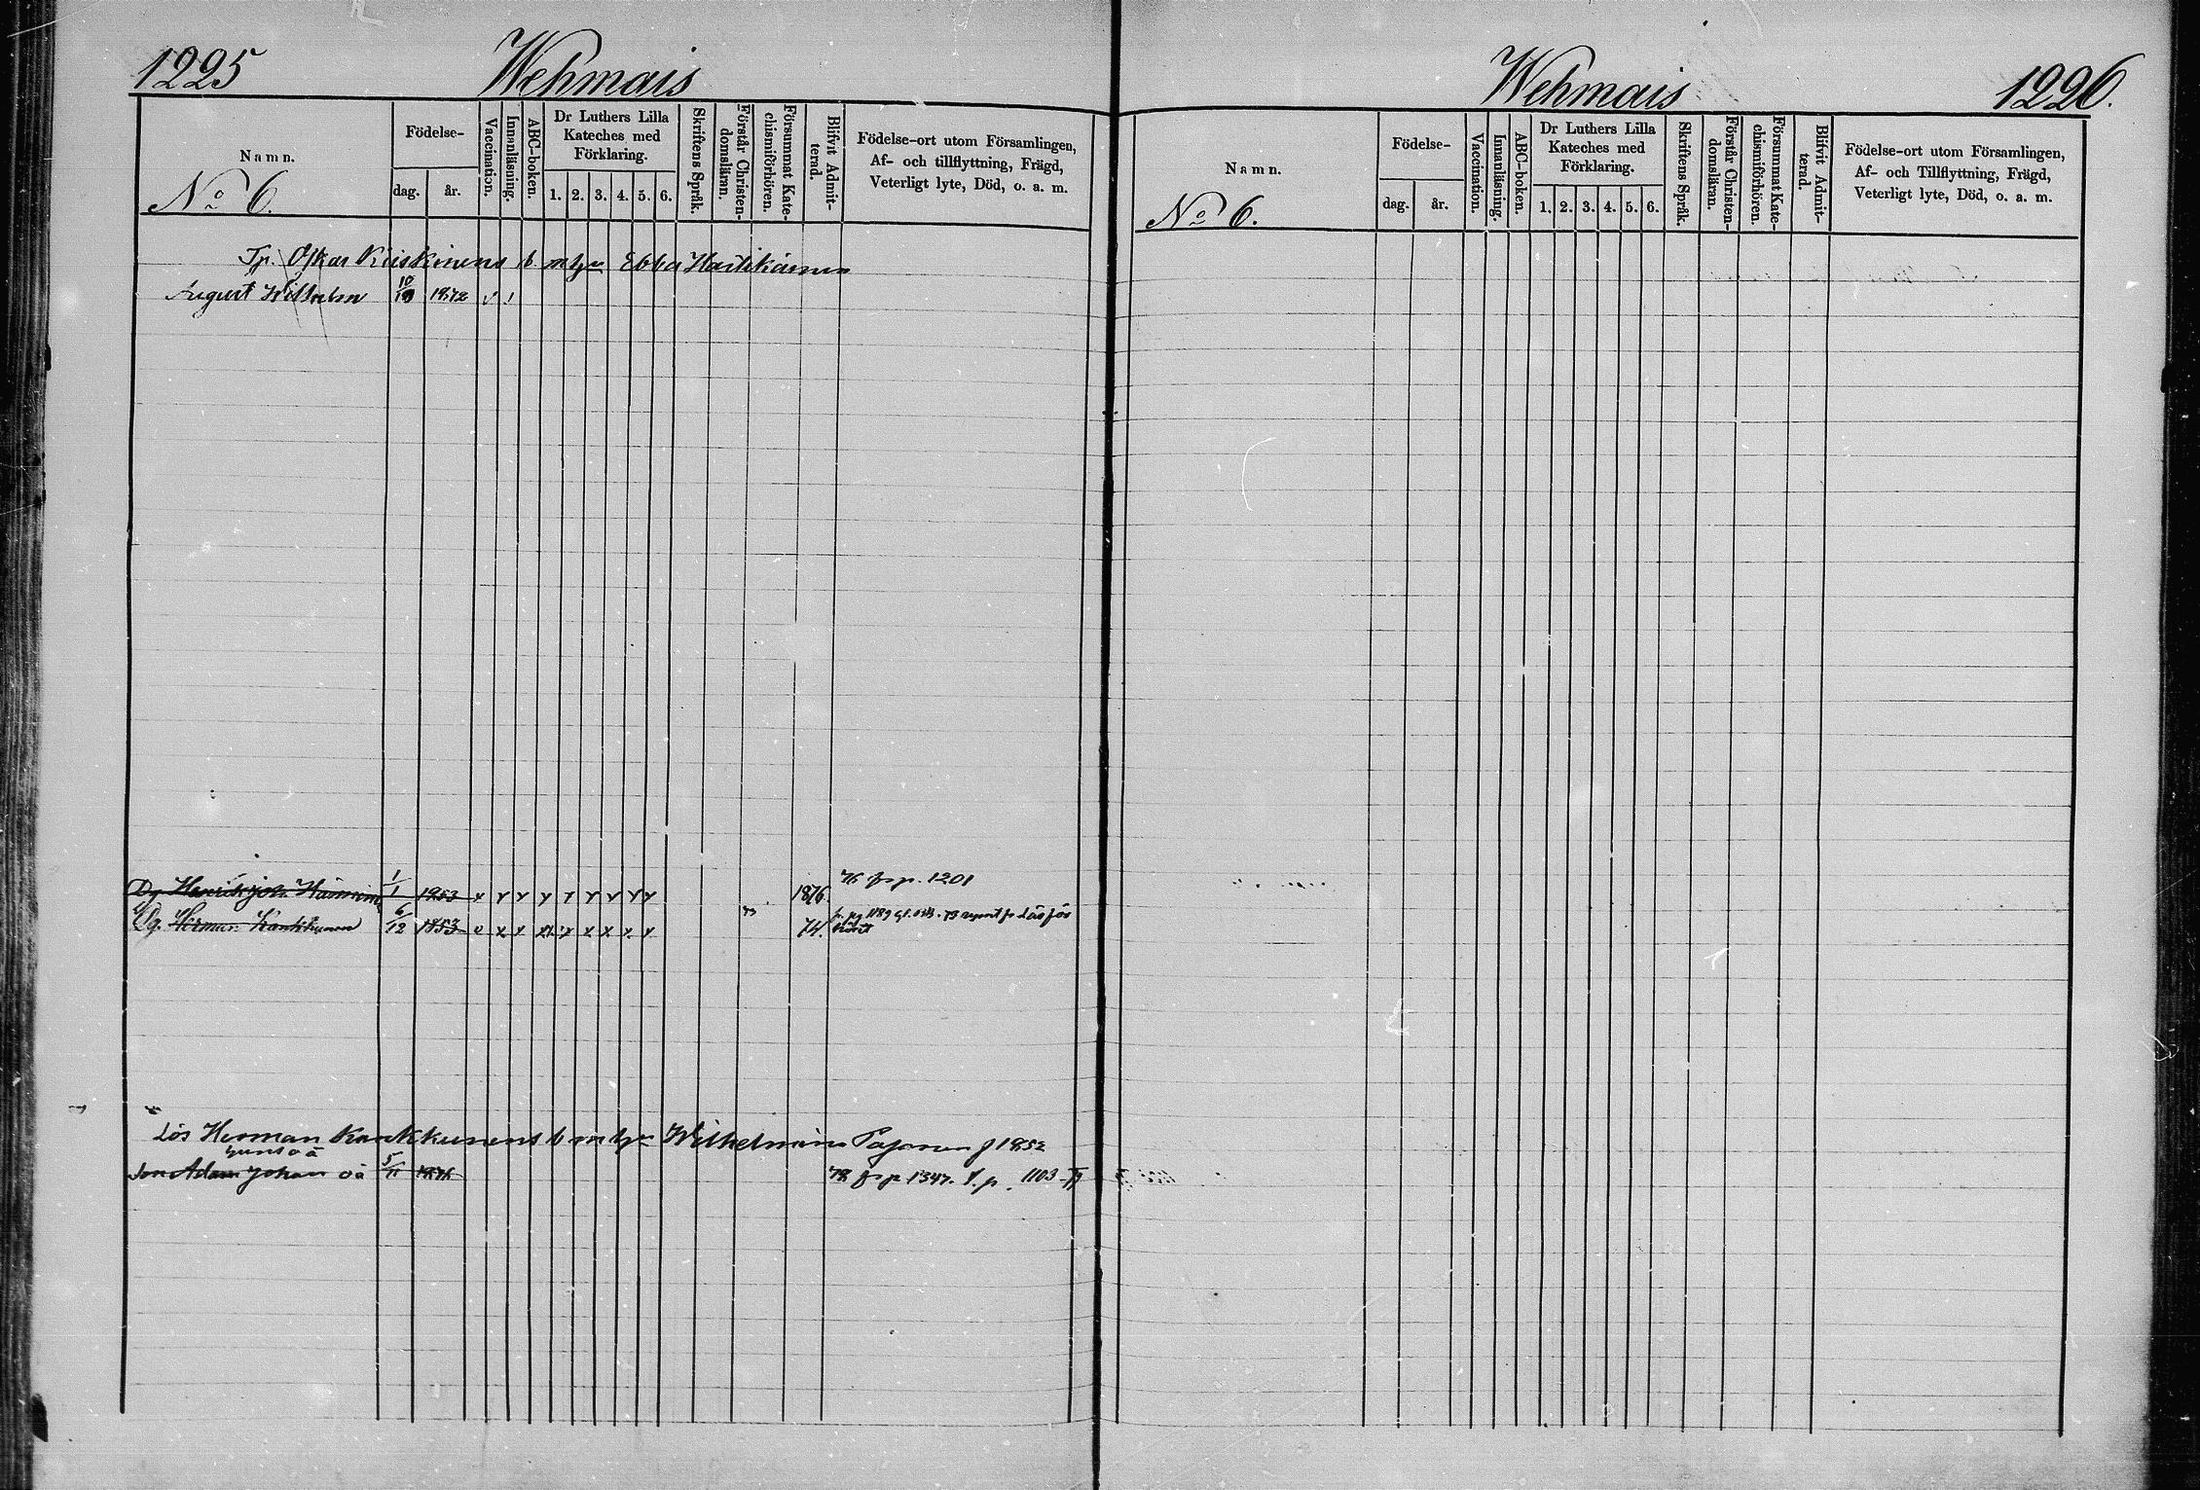 1225 Wehmais
Namn. Födelse- Vaccination. Innanläsning. ABC-boken. Dr Luthers Lilla Kateches med Förklaring. Skriftens Språk. Förstår Christendomsläran. Försummat Katechismiförhören. Blifvit Admitterad. Födelse-ort utom Församlingen, Af- och tillflyttning, Frägd, Veterligt lyte, Död, o. a. m.
dag. år. 1. 2. 3. 4. 5. 6.
No 6.
Oskar Ebba
August Wilhelm 1872
1/1 1853 1876 76 fr p. 1201
Herman 6/12 1853 73 74.
Lös Herman Kankkunens Wilhelmina 1852
Son Adam Johan oä 5/11 1876 78 p 1347. 1103
Wehmais 1226.
Namn. Födelse- Vaccination. Innanläsning. ABC-boken. Dr Luthers Lilla Kateches med Förklaring. Skriftens Språk. Förstår Christendomsläran. Försummat Katechismiförhören. Blifvit Admitterad. Födelse-ort utom Församlingen, Af- och Tillflyttning, Frägd, Veterligt lyte, Död, o. a. m.
dag. år. 1. 2. 3. 4. 5. 6.
No 6.